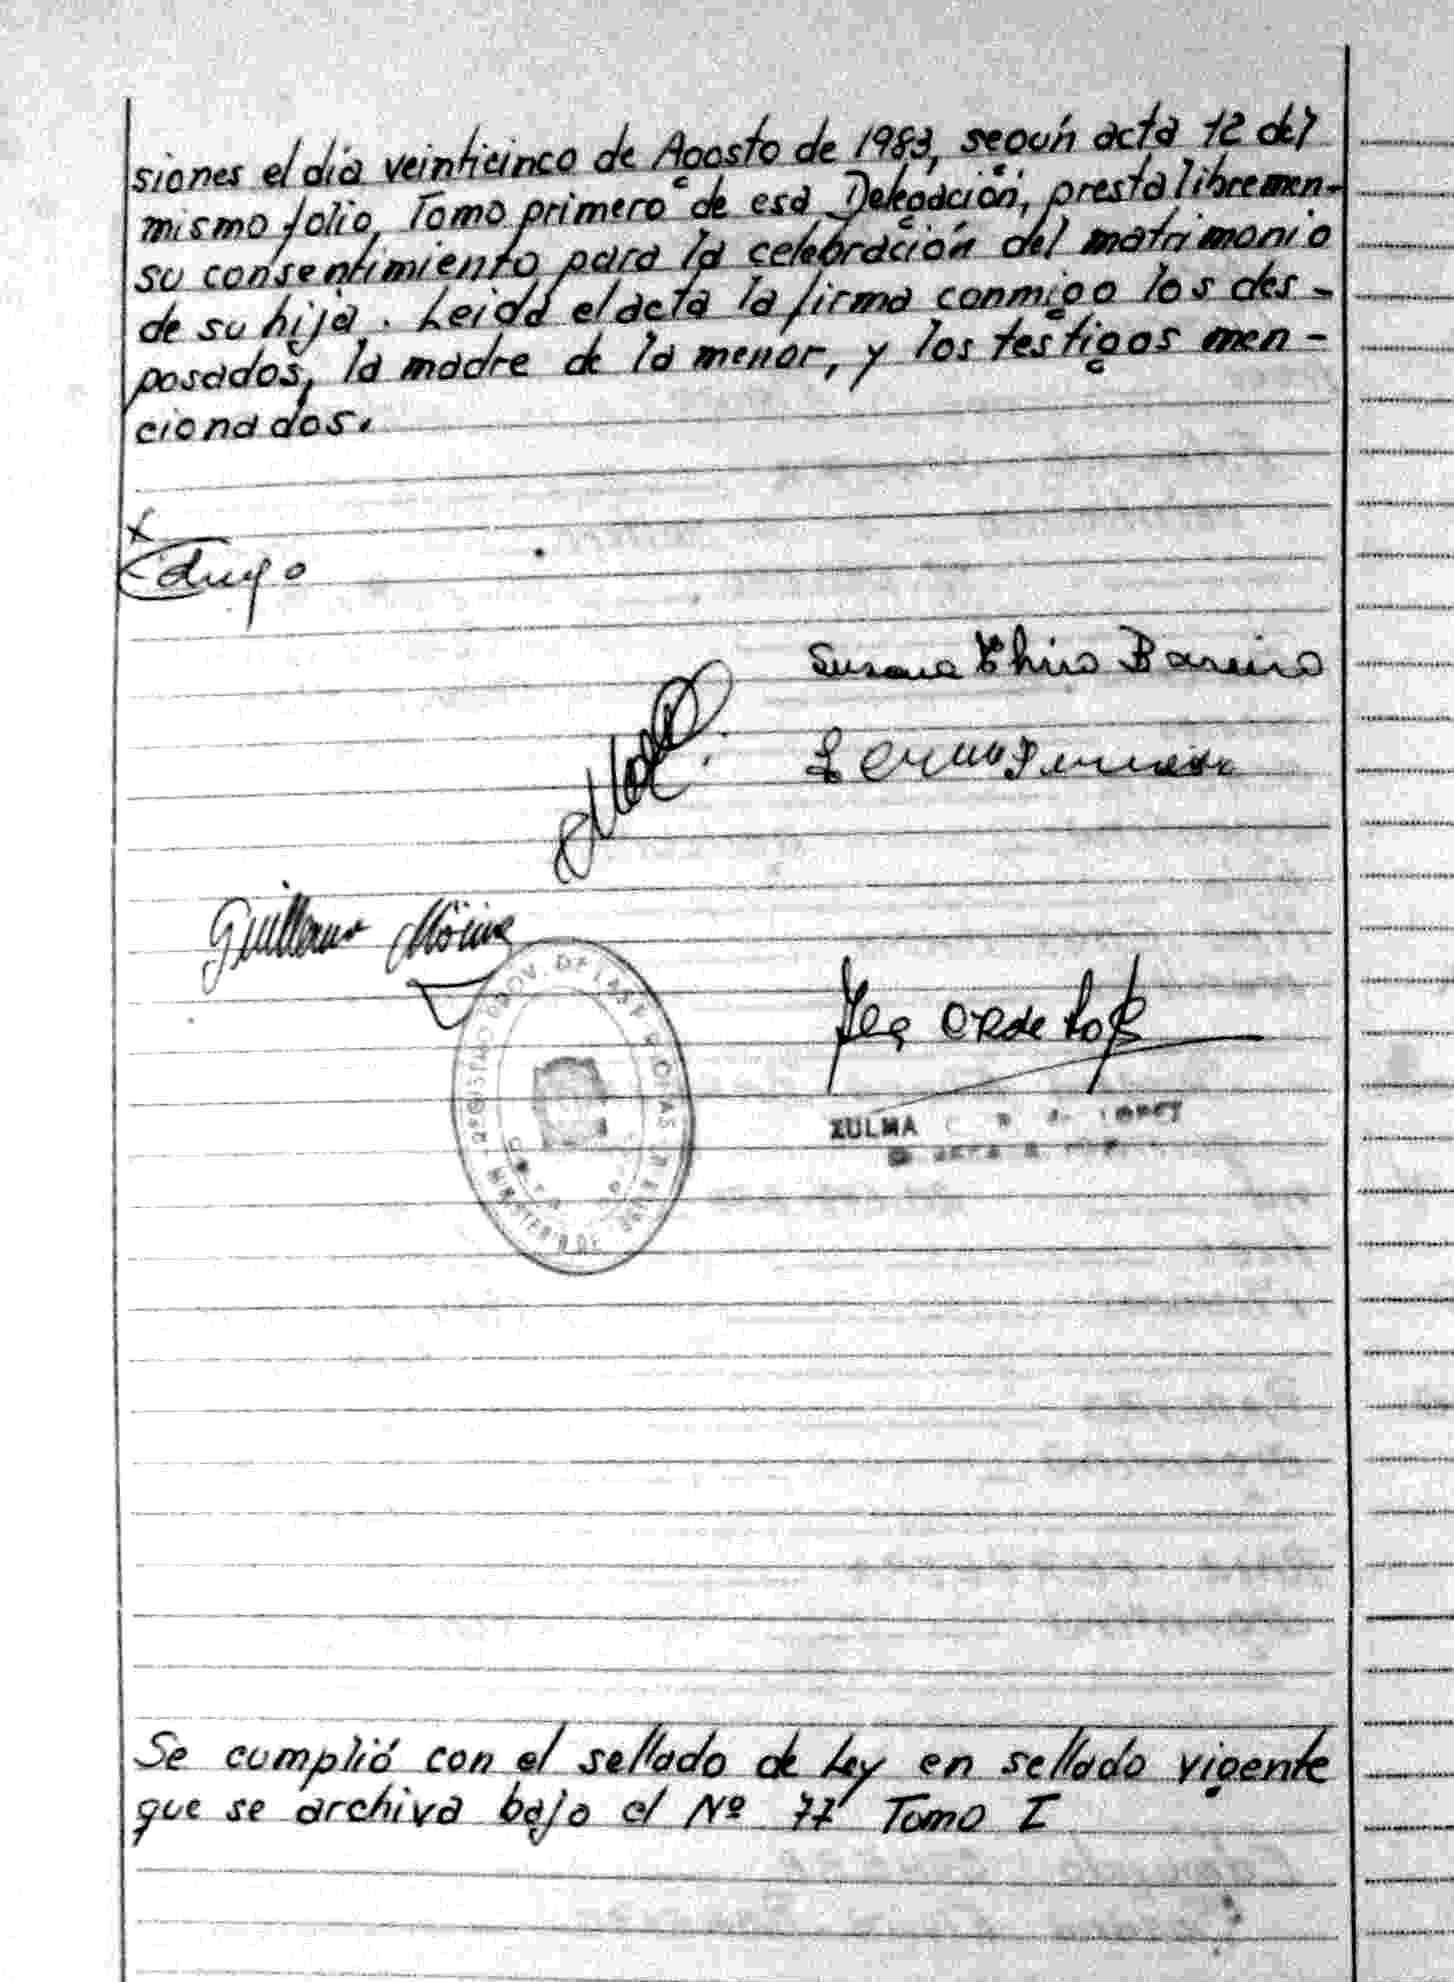 siones el día veinticinco de Agosto de 1983, según acta 12 del
mismo folio, Tomo primero de esa Delegación, presta libremen-
su consentimiento para la celebración del matrimonio
de su hija. Leida el acta la firma conmigo los des-
posados, la madre de la menor, y los testigos men-
cionados.
Susana Bareiro
Guillermo
REGISTRO PROV. DE LAS PERSONAS
MINISTERIO DE
ZULMA
Se cumplió con el sellado de Ley en sellado vigente
que se archiva bajo el Nº 77 Tomo I